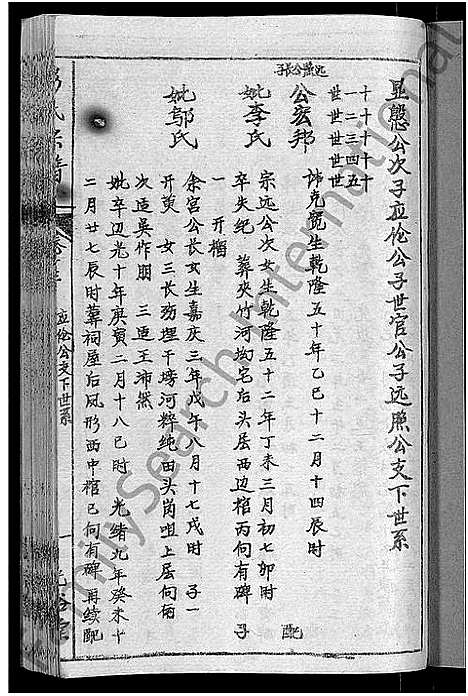 显懲公次子应伦公子世官公子远照公支下世系
十一世
十二世
十三世
十四世
十五世
远照公长子
公宏邦
讳克宽生乾隆五十年乙巳十二月十四辰时 配
妣李氏
宗远公次女生乾隆五十二年丁未三月初七卯时
卒失纪 葬夹竹河坳宅后头层西边棺丙向有碑 子
一 开榴
妣邬氏
余宫公长女生嘉庆三年戊午八月十七戌时 子一
开萸 女三长殇埋干塝河粹纯田头岗咀上层向酉
次适吴作朋 三适王沛然
妣卒道光十年庚寅二月十八巳时 光绪九年癸未十
二月廿七辰时葬祠屋后凤形西中棺巳向有碑 再续配
氏宗谱
卷
应伦公支下世系
一
FamilySearch International